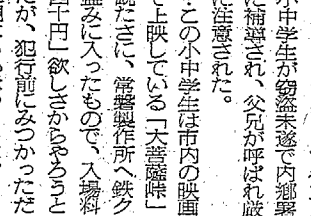 小中学生が窃盗未遂で内郷署
に補導され、父兄が呼ばれ厳
に注意された。
・この小中学生は市内の映画
で上映している「大菩薩峠」
観たさに、常磐製作所へ鉄ク
盗みに入ったもので、入場料
四十円」欲しさからやろうと
だが、犯行前にみつかっただ